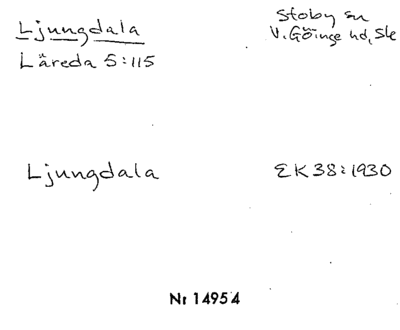 Ljungdala
Stoby sn
V. Göinge hd, Sk
Läreda 5:115
Ljungdala
EK 38:1930
Nr 14954